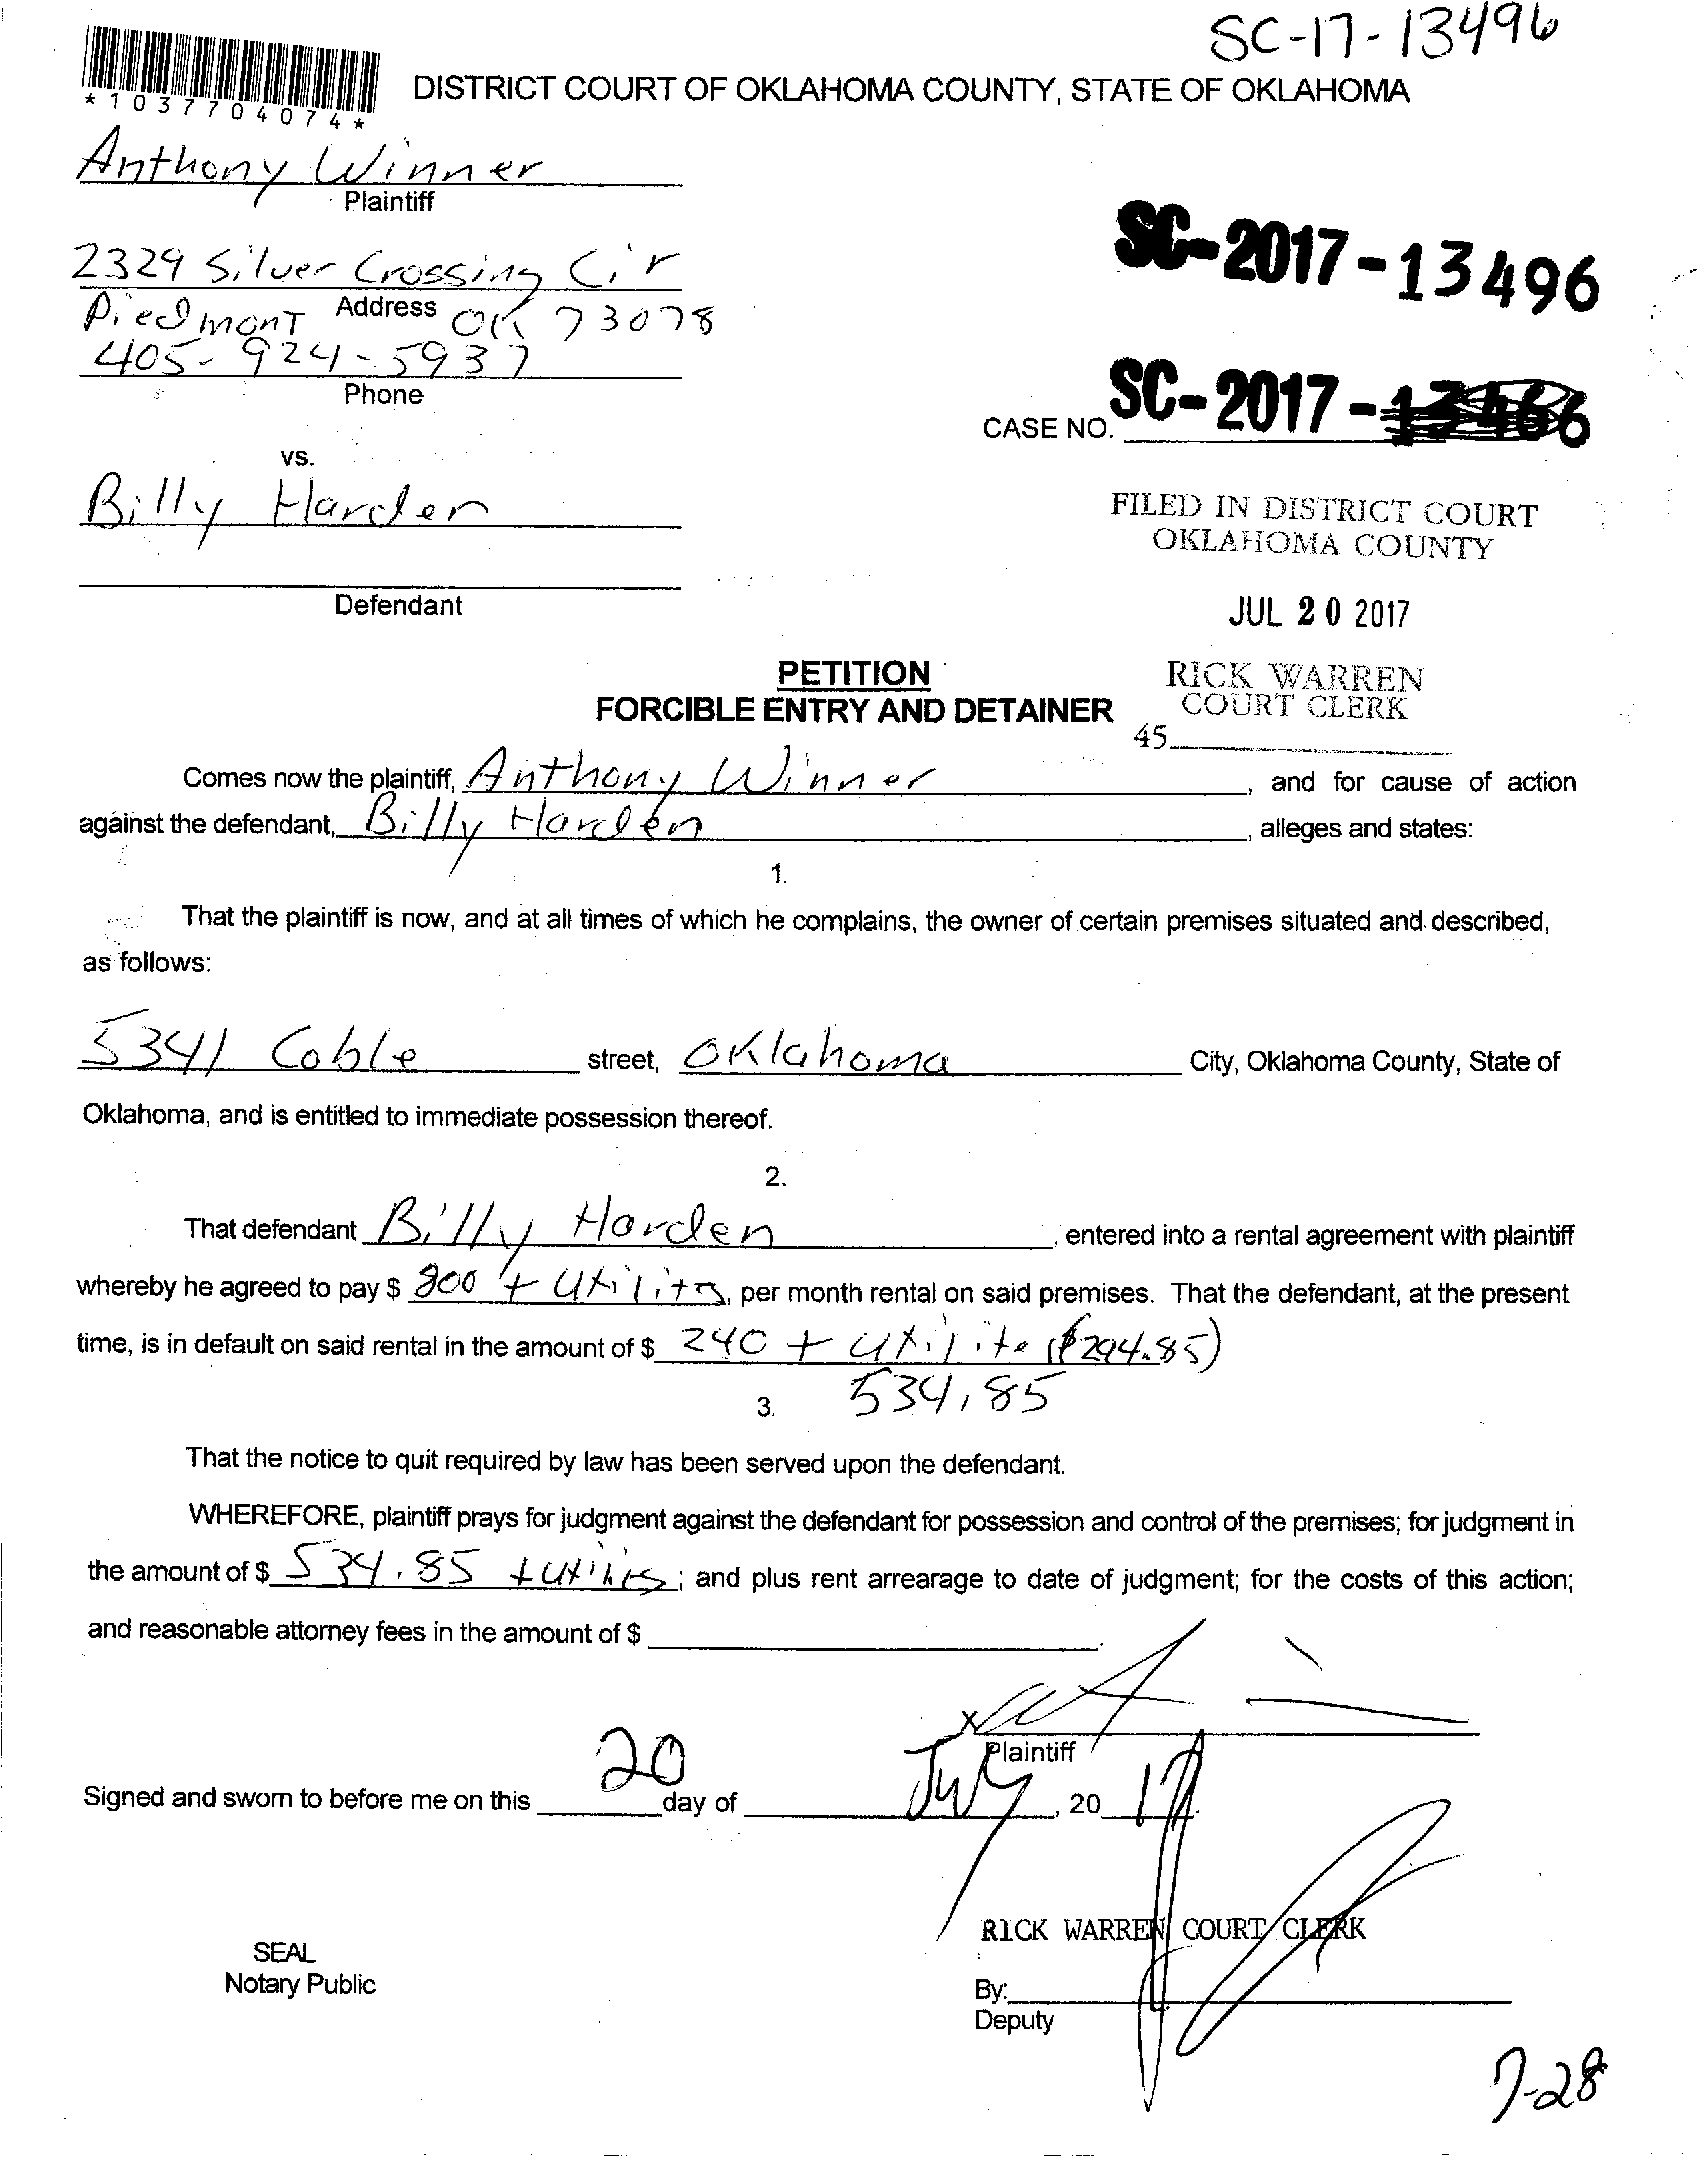 SC-17-13496
*1037704074*
DISTRICT COURT OF OKLAHOMA COUNTY, STATE OF OKLAHOMA
Anthony Winner
Plaintiff
2329 Silver Crossing Cir
Address
Piedmont OK 73078
405-924-5937
Phone
SC-2017-13496
CASE NO. SC-2017-
vs.
Billy Harden
Defendant
FILED IN DISTRICT COURT
OKLAHOMA COUNTY
JUL 20 2017
RICK WARREN
COURT CLERK
45
PETITION
FORCIBLE ENTRY AND DETAINER
Comes now the plaintiff, Anthony Winner, and for cause of action
against the defendant, Billy Harden, alleges and states:
1.
That the plaintiff is now, and at all times of which he complains, the owner of certain premises situated and described,
as follows:
5341 Coble street, Oklahoma City, Oklahoma County, State of
Oklahoma, and is entitled to immediate possession thereof.
2.
That defendant Billy Harden, entered into a rental agreement with plaintiff
whereby he agreed to pay $ + , per month rental on said premises. That the defendant, at the present
time, is in default on said rental in the amount of $ 240 + utilite ($294.85)
534.85
3.
That the notice to quit required by law has been served upon the defendant.
WHEREFORE, plaintiff prays for judgment against the defendant for possession and control of the premises; for judgment in
the amount of $ 534.85 + ; and plus rent arrearage to date of judgment; for the costs of this action;
and reasonable attorney fees in the amount of $
X
Plaintiff
Signed and sworn to before me on this 20 day of July, 2017.
RICK WARREN COURT CLERK
SEAL
Notary Public
By:
Deputy
7-28